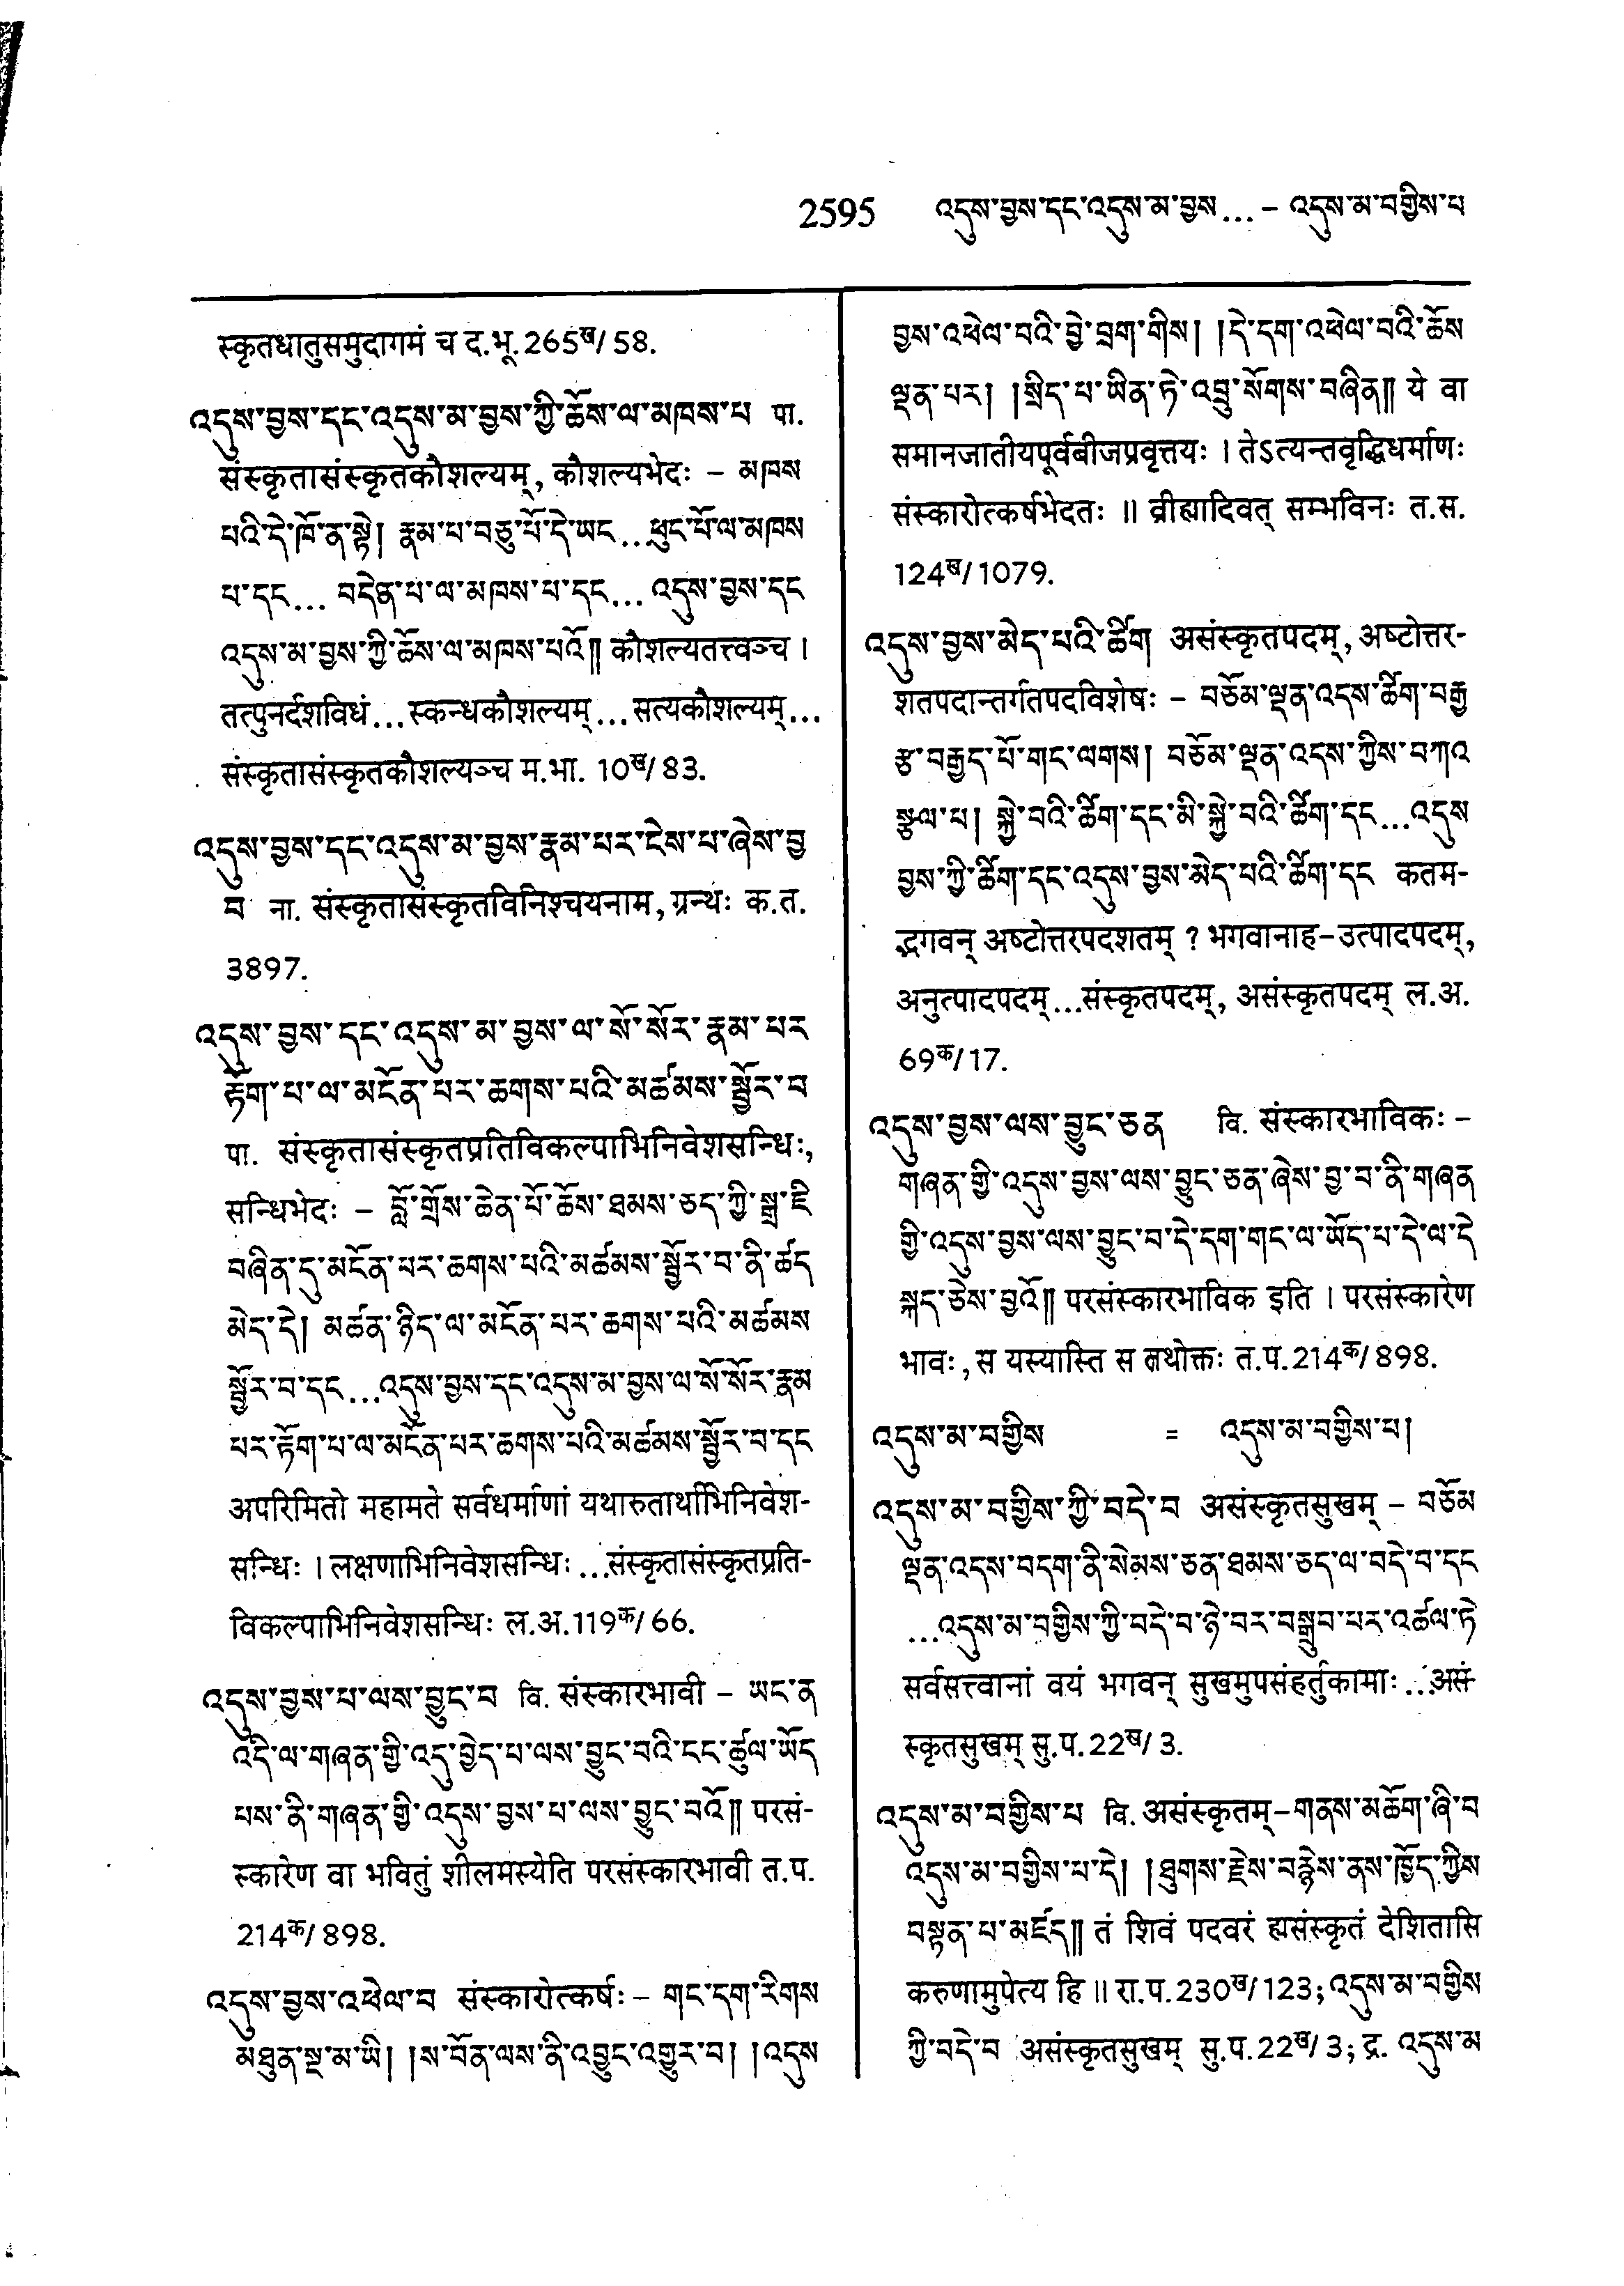 2595 འདུས་བྱས་དང་འདུས་མ་བྱས... – འདུས་མ་བགྱིས་པ
स्कृतधातुसमुदागमं च द.भू.265ख/58.
འདུས་བྱས་དང་འདུས་མ་བྱས་ཀྱི་ཆོས་ལ་མཁས་པ पा.
संस्कृतासंस्कृतकौशल्यम्, कौशल्यभेदः – མཁས
པའི་དེ་ཁོ་ན་སྟེ། རྣམ་པ་བཅུ་པོ་དེ་ཡང...ཕུང་པོ་ལ་མཁས
པ་དང... བདེན་པ་ལ་མཁས་པ་དང... འདུས་བྱས་དང
འདུས་མ་བྱས་ཀྱི་ཆོས་ལ་མཁས་པའོ॥ कौशल्यतत्त्वञ्च ।
तत्पुनर्दशविधं...स्कन्धकौशल्यम्...सत्यकौशल्यम्...
संस्कृतासंस्कृतकौशल्यञ्च म.भा. 10ख/83.
འདུས་བྱས་དང་འདུས་མ་བྱས་རྣམ་པར་ངེས་པ་ཞེས་བྱ
བ ना. संस्कृतासंस्कृतविनिश्चयनाम, ग्रन्थः क.त.
3897.
འདུས་བྱས་དང་འདུས་མ་བྱས་ལ་སོ་སོར་རྣམ་པར
རྟོག་པ་ལ་མངོན་པར་ཆགས་པའི་མཚམས་སྦྱོར་བ
पा. संस्कृतासंस्कृतप्रतिविकल्पाभिनिवेशसन्धिः,
सन्धिभेदः – བློ་གྲོས་ཆེན་པོ་ཆོས་ཐམས་ཅད་ཀྱི་སྒྲ་ཇི
བཞིན་དུ་མངོན་པར་ཆགས་པའི་མཚམས་སྦྱོར་བ་ནི་ཚད
མེད་དེ། མཚན་ཉིད་ལ་མངོན་པར་ཆགས་པའི་མཚམས
སྦྱོར་བ་དང...འདུས་བྱས་དང་འདུས་མ་བྱས་ལ་སོ་སོར་རྣམ
པར་རྟོག་པ་ལ་མངོན་པར་ཆགས་པའི་མཚམས་སྦྱོར་བ་དང
अपरिमितो महामते सर्वधर्माणां यथारुतार्थाभिनिवेश-
सन्धिः । लक्षणाभिनिवेशसन्धिः...संस्कृतासंस्कृतप्रति-
विकल्पाभिनिवेशसन्धिः ल.अ.119क/66.
འདུས་བྱས་པ་ལས་བྱུང་བ वि. संस्कारभावी – ཡང་ན
འདི་ལ་གཞན་གྱི་འདུ་བྱེད་པ་ལས་བྱུང་བའི་ངང་ཚུལ་ཡོད
པས་ནི་གཞན་གྱི་འདུས་བྱས་པ་ལས་བྱུང་བའོ॥ परसं-
स्कारेण वा भवितुं शीलमस्येति परसंस्कारभावी त.प.
214क/898.
འདུས་བྱས་འཕེལ་བ संस्कारोत्कर्षः – གང་དག་རིགས
མཐུན་སྔ་མ་ཡི། །ས་བོན་ལས་ནི་འབྱུང་འགྱུར་བ། །འདུས
བྱས་འཕེལ་བའི་བྱེ་བྲག་གིས། །དེ་དག་འཕེལ་བའི་ཆོས
ལྡན་པར། །སྲིད་པ་ཡིན་ཏེ་འབྲུ་སོགས་བཞིན॥ ये वा
समानजातीयपूर्वबीजप्रवृत्तयः । तेऽत्यन्तवृद्धिधर्माणः
संस्कारोत्कर्षभेदतः ॥ व्रीह्यादिवत् सम्भविनः त.स.
124ख/1079.
འདུས་བྱས་མེད་པའི་ཚིག असंस्कृतपदम्, अष्टोत्तर-
शतपदान्तर्गतपदविशेषः – བཅོམ་ལྡན་འདས་ཚིག་བརྒྱ
རྩ་བརྒྱད་པོ་གང་ལགས། བཅོམ་ལྡན་འདས་ཀྱིས་བཀའ
སྩལ་པ། སྐྱེ་བའི་ཚིག་དང་མི་སྐྱེ་བའི་ཚིག་དང...འདུས
བྱས་ཀྱི་ཚིག་དང་འདུས་བྱས་མེད་པའི་ཚིག་དང कतम-
द्भगवन् अष्टोत्तरपदशतम् ? भगवानाह–उत्पादपदम्,
अनुत्पादपदम्...संस्कृतपदम्, असंस्कृतपदम् ल.अ.
69क/17.
འདུས་བྱས་ལས་བྱུང་ཅན वि. संस्कारभाविकः –
གཞན་གྱི་འདུས་བྱས་ལས་བྱུང་ཅན་ཞེས་བྱ་བ་ནི་གཞན
གྱི་འདུས་བྱས་ལས་བྱུང་བ་དེ་དག་གང་ལ་ཡོད་པ་དེ་ལ་དེ
སྐད་ཅེས་བྱའོ॥ परसंस्कारभाविक इति । परसंस्कारेण
भावः, स यस्यास्ति स तथोक्तः त.प.214क/898.
འདུས་མ་བགྱིས = འདུས་མ་བགྱིས་པ།
འདུས་མ་བགྱིས་ཀྱི་བདེ་བ असंस्कृतसुखम् – བཅོམ
ལྡན་འདས་བདག་ནི་སེམས་ཅན་ཐམས་ཅད་ལ་བདེ་བ་དང
...འདུས་མ་བགྱིས་ཀྱི་བདེ་བ་ཉེ་བར་བསྒྲུབ་པར་འཚལ་ཏེ
सर्वसत्त्वानां वयं भगवन् सुखमुपसंहर्तुकामाः...असं-
स्कृतसुखम् सु.प.22ख/3.
འདུས་མ་བགྱིས་པ वि. असंस्कृतम्–གནས་མཆོག་ཞི་བ
འདུས་མ་བགྱིས་པ་དེ། །ཐུགས་རྗེས་བརྙེས་ནས་ཁྱོད་ཀྱིས
བསྟན་པ་མཛོད॥ तं शिवं पदवरं ह्यसंस्कृतं देशितासि
करुणामुपेत्य हि ॥ रा.प.230ख/123; འདུས་མ་བགྱིས
ཀྱི་བདེ་བ असंस्कृतसुखम् सु.प.22ख/3; द्र. འདུས་མ